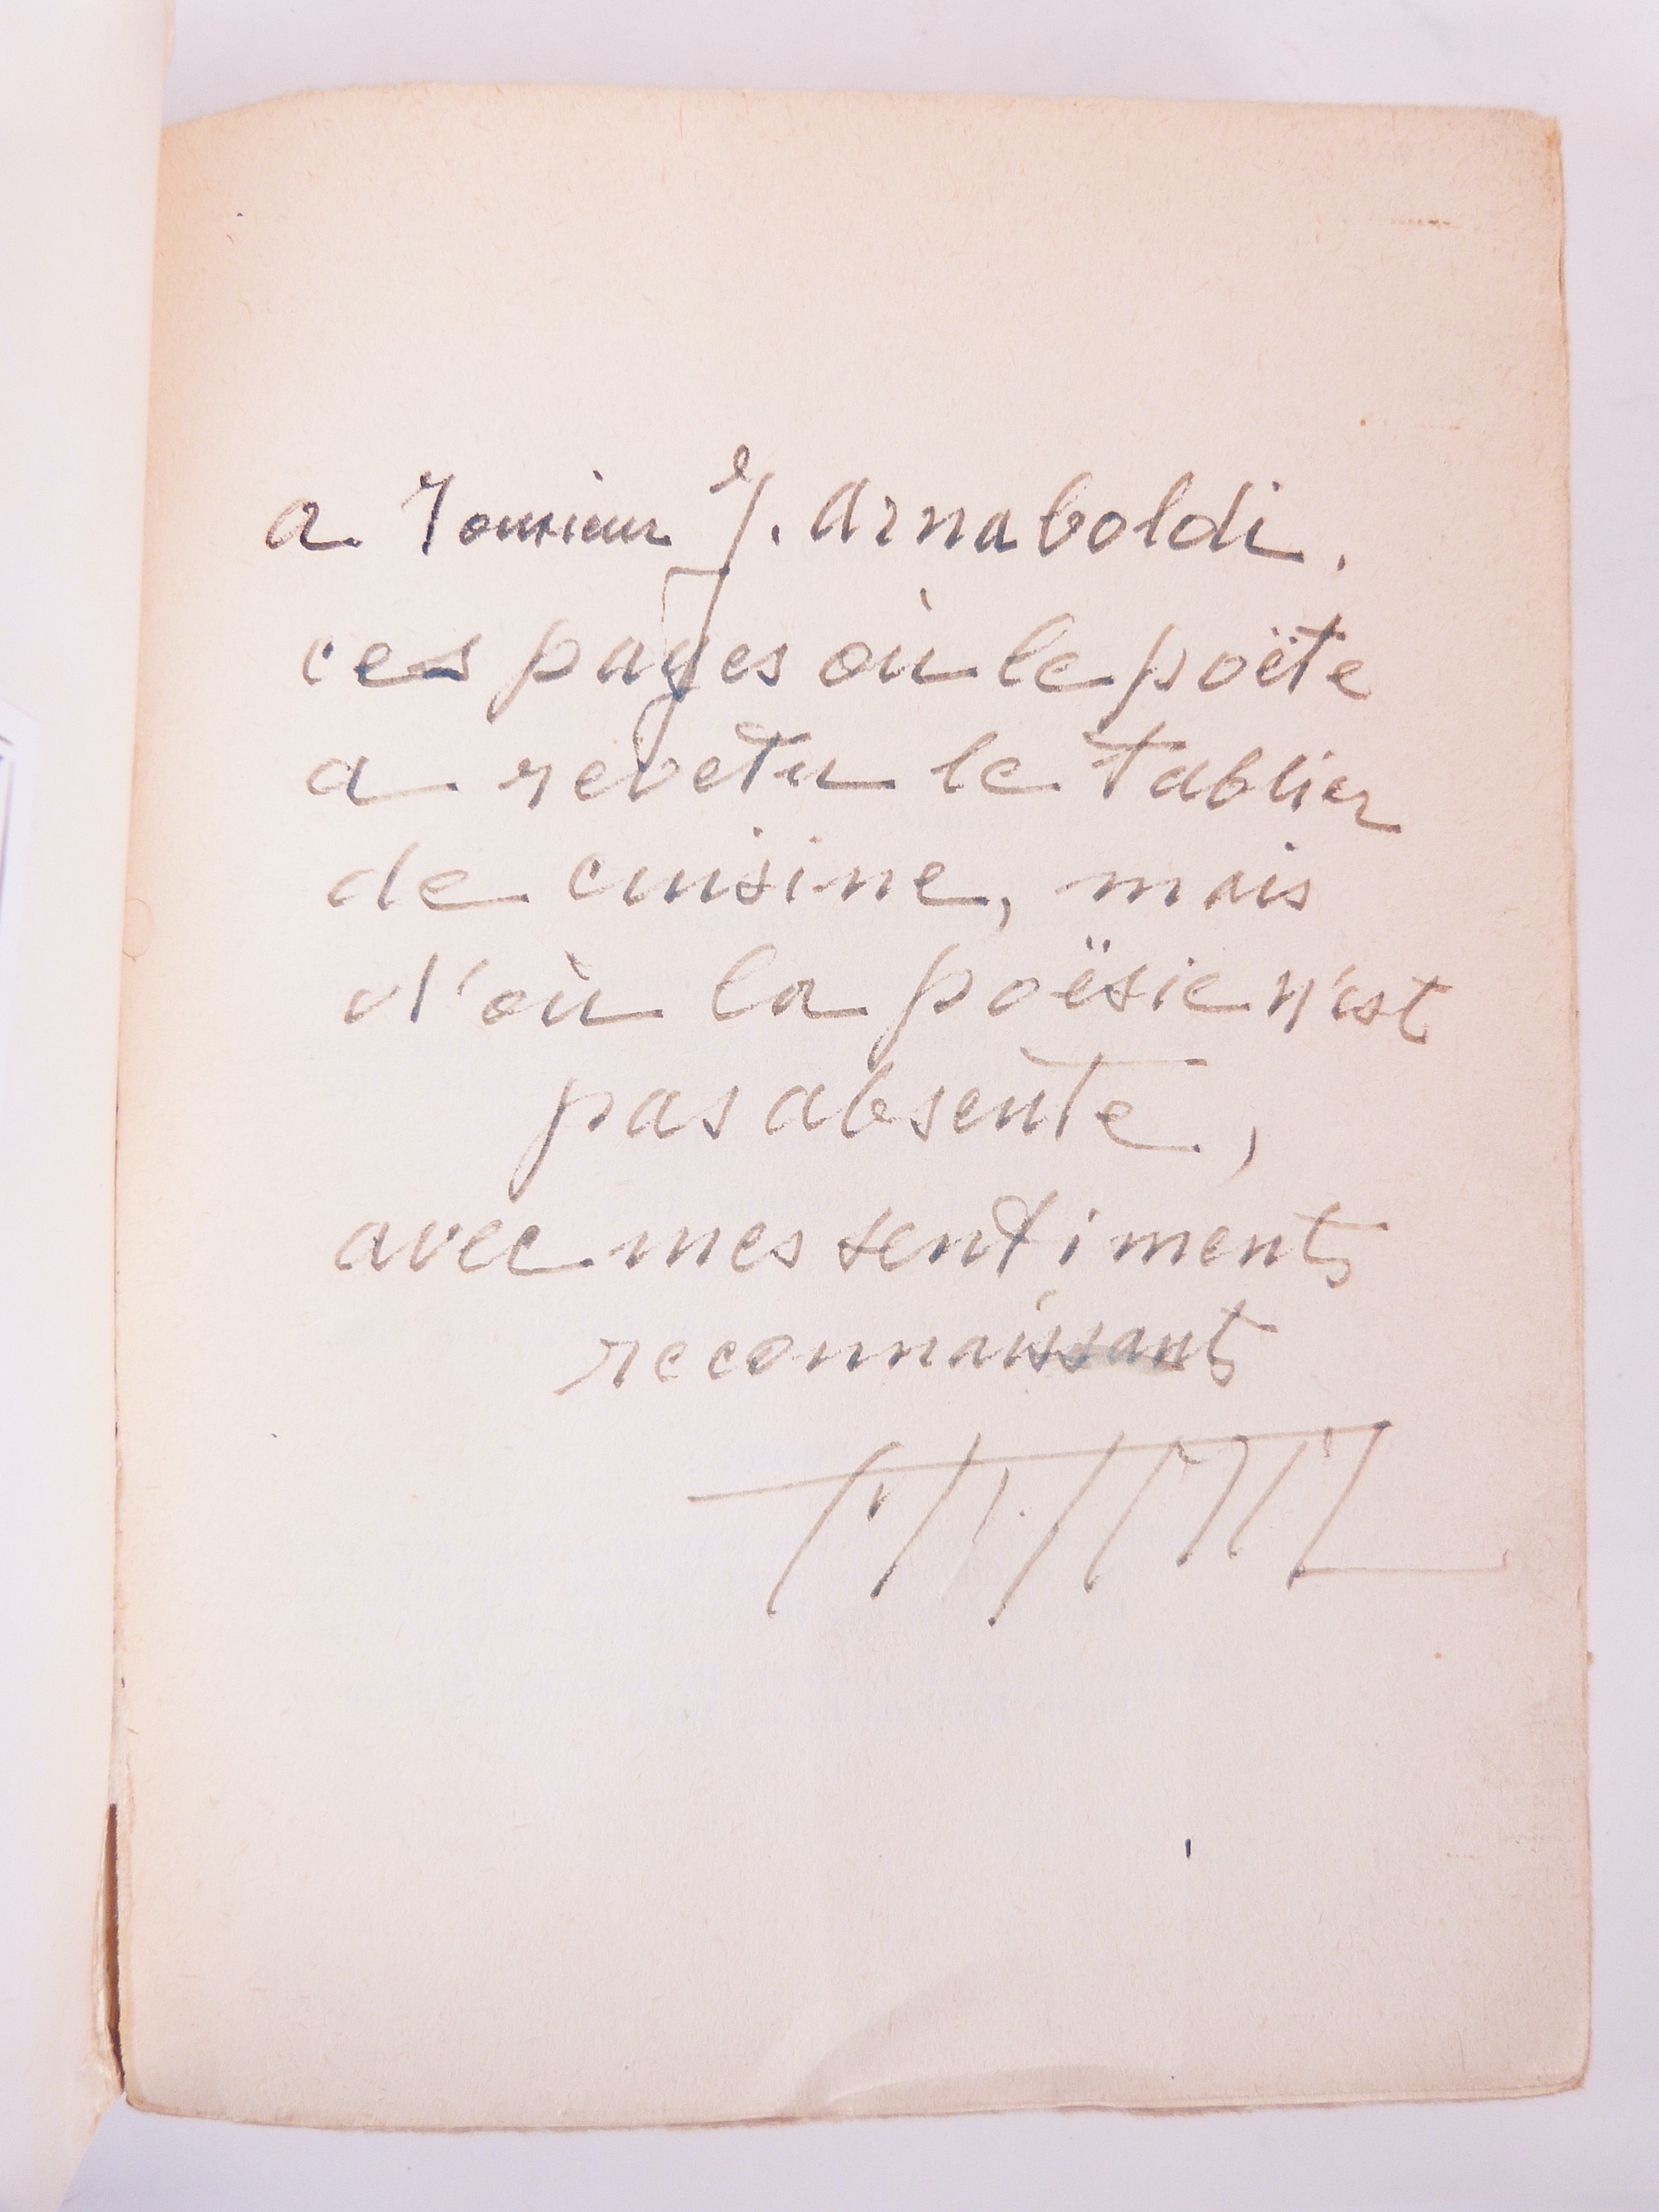 a Monsieur J. Arnaboldi.
ces pages où le poëte
a revêtu le tablier
de cuisine, mais
d'où la poësie n'est
pas absente,
avec mes sentiments
reconnaissants